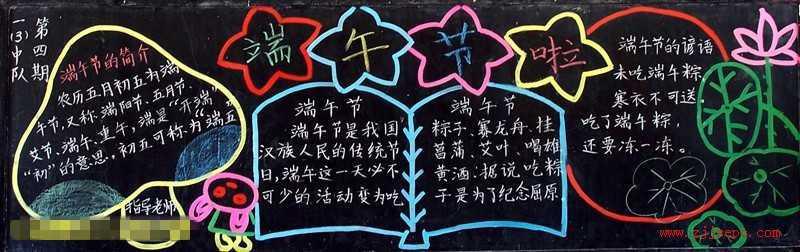 第四期
一(3)中队
端午节啦
端午节的简介
农历五月初五为端
午节,又称端阳节、五月节、
艾节、端午、重午,端是“开端”
“初”的意思,初五可称为“端五
指导老师
端午节
端午节是我国
汉族人民的传统节
日,端午这一天必不
可少的活动变为吃
端午节
粽子、赛龙舟、挂
菖蒲、艾叶、喝雄
黄酒.据说吃粽
子是为了纪念屈原.
端午节的谚语
未吃端午粽,
寒衣不可送,
吃了端午粽,
还要冻一冻。